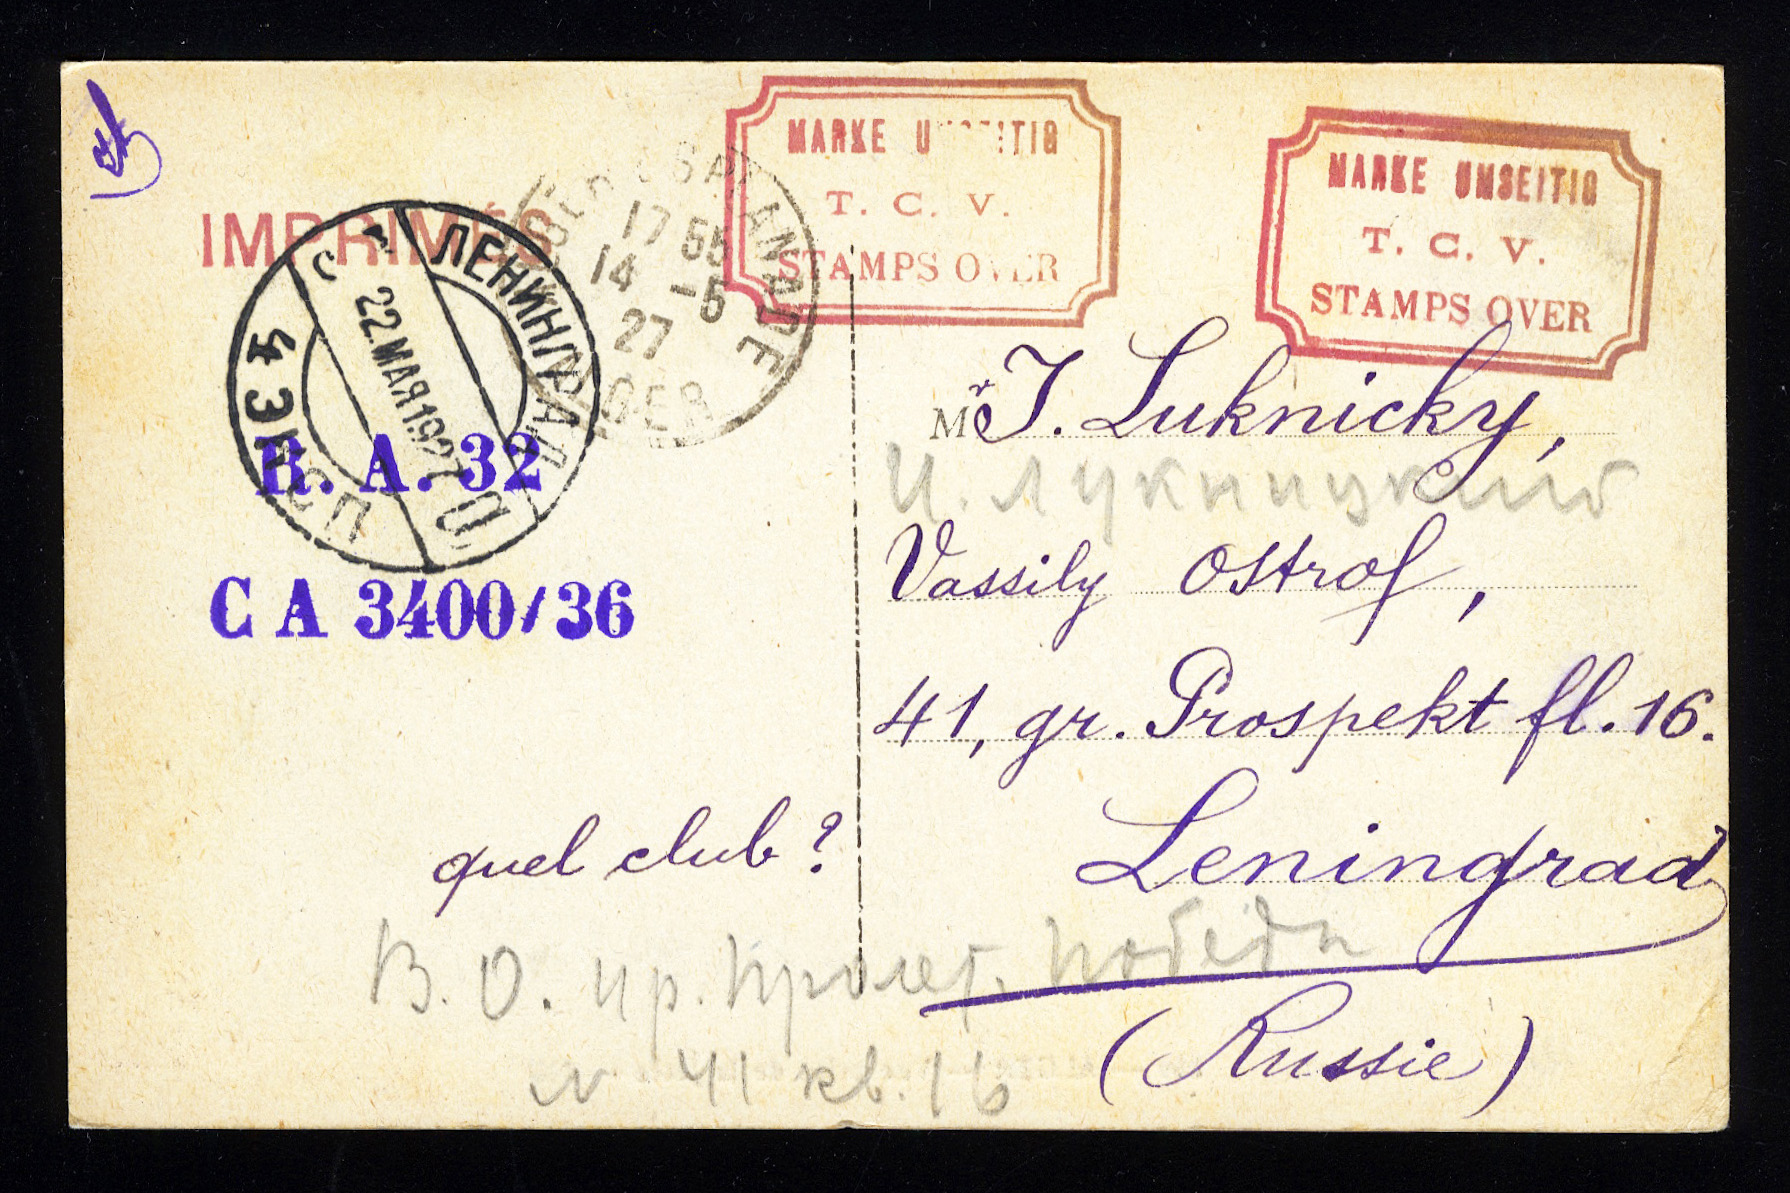 MARKE UMSEITIG
T. C. V.
STAMPS OVER
MARKE UMSEITIG
T. C. V.
STAMPS OVER
IMPRIMÉS
17 55
14 -5
27
ЛЕНИНГРАД
22.МАЯ1927
4 ЭКСП
R. A. 32
C A 3400/36
Mr J. Luknicky,
И. Лукницкий
Vassily Ostrof,
41, gr. Prospekt fl. 16.
Leningrad
quel club?
В. О. пр. Пролет. Победы
(Russie)
N 41 кв. 16